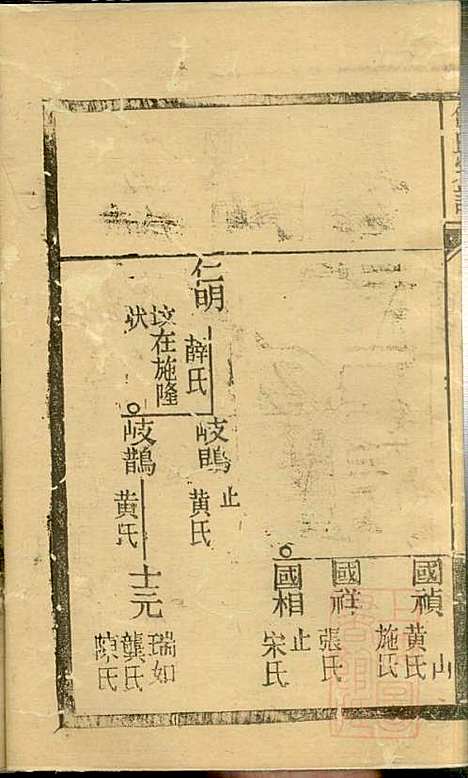 國禎
黃氏
施氏
國祥
張氏
國相
止
宋氏
仁明
薛氏
坟在施隆
狀
岐鵾
止
黃氏
岐鵲
黃氏
士元
瑞如
龔氏
陳氏